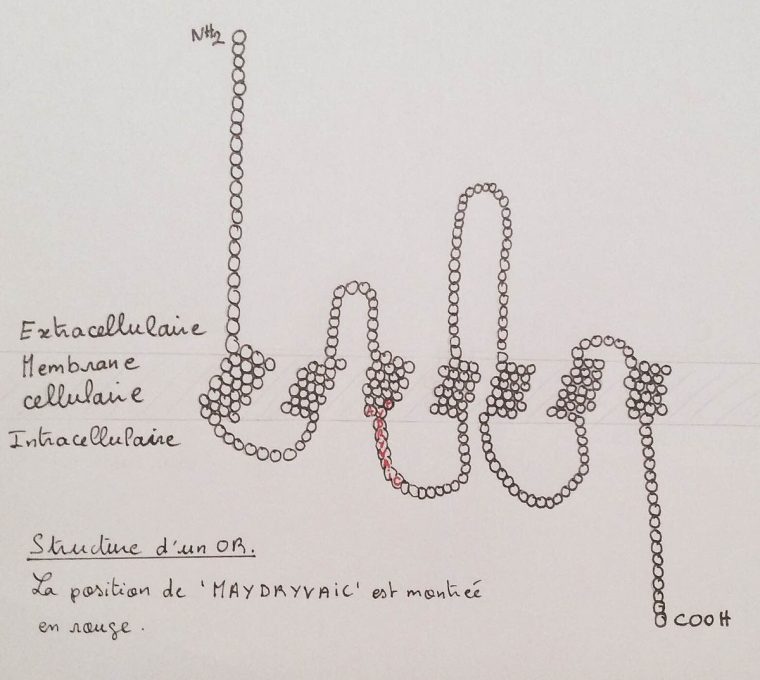 NH2
Extracellulaire
Membrane
cellulaire
Intracellulaire
COOH
Structure d'un OR.
La position de 'MAYDRYVAiC' est montrée
en rouge.